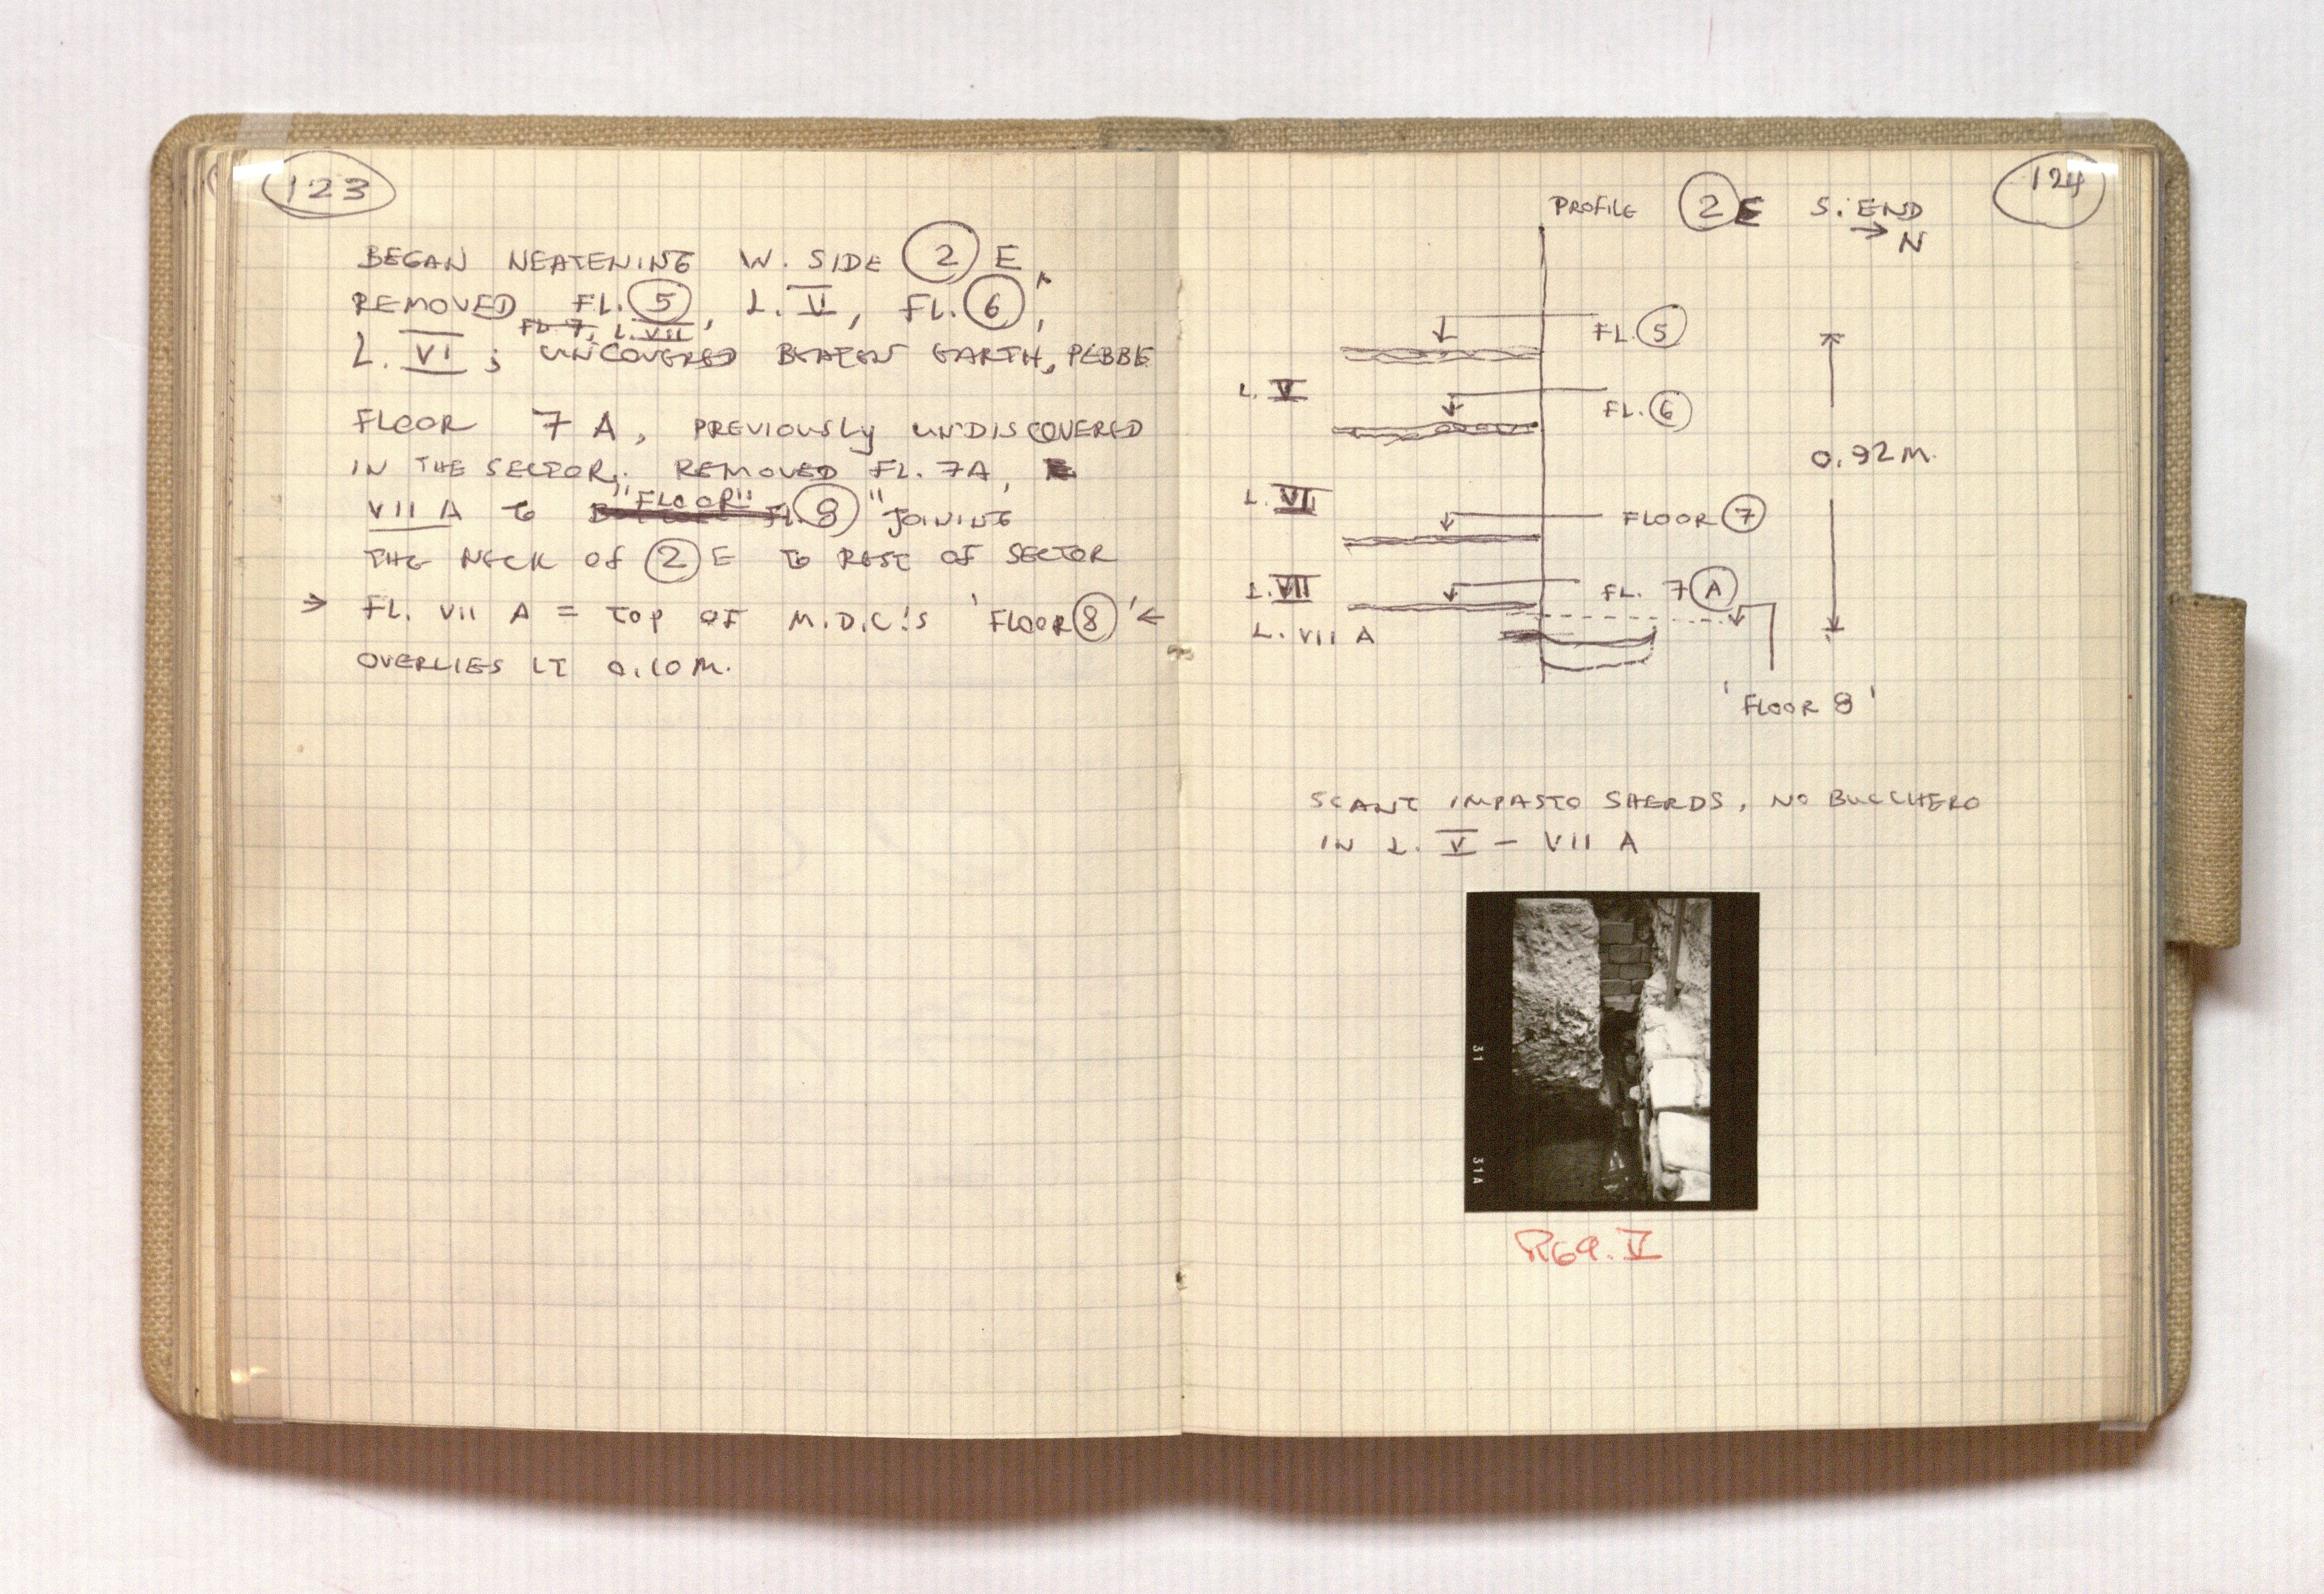 123
BEGAN NEATENING W. SIDE 2 E,
REMOVED FL. 5, L. V, FL. 6,
FL. 7, L. VII
L. VI; UNCOVERED BEATEN EARTH, PEBBE
FLOOR 7 A, PREVIOUSLY UNDISCOVERED
IN THE SECTOR. REMOVED FL. 7A,
"FLOOR"
VII A TO 8 "JOINING
THE NECK OF 2 E TO REST OF SECTOR
→ FL. VII A = TOP OF M.D.C.'S 'FLOOR 8' ←
OVERLIES IT 0.10 M.
124
PROFILE 2 E S. END
→ N
FL. 5
L. V
FL. 6
0.92 M.
L. VI
FLOOR 7
L. VII
FL. 7 A
L. VII A
'FLOOR 8'
SCANT IMPASTO SHERDS, NO BUCCHERO
IN L. V - VII A
31
31A
R69. V